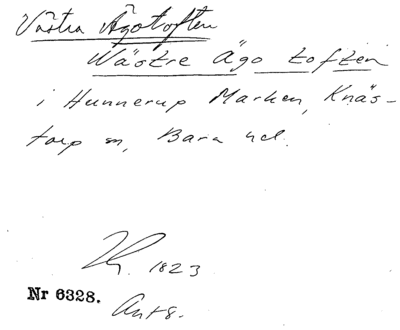 Västra Ägotoften
Wästre Ägo toften
i Hunnerup Marken, Knäs-
torp sn, Bara hd.
1823
Nr 6328.